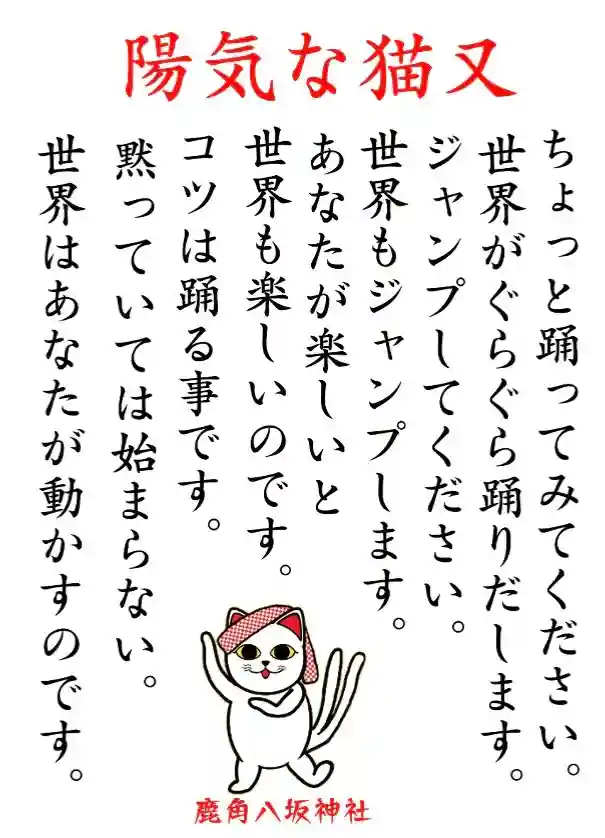 陽気な猫又
ちょっと踊ってみてください。
世界がぐらぐら踊りだします。
ジャンプしてください。
世界もジャンプします。
あなたが楽しいと
世界も楽しいのです。
コツは踊る事です。
黙っていては始まらない。
世界はあなたが動かすのです。
鹿角八坂神社